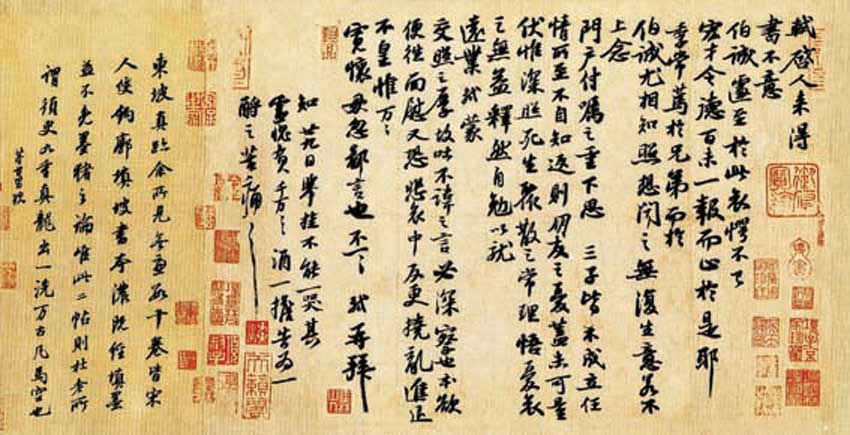 軾啓人来得
書不意
伯誠遽至於此哀愕不已
宏才令德百未一報而止於是耶
季常篤於兄弟而於
伯誠尤相知照想聞之無復生意若不
上念
門戶付囑之重下思三子皆不成立任
情所至不自知返則朋友之憂蓋未可量
伏惟深照死生聚散之常理悟憂哀
之無益釋然自勉以就
遠業軾蒙
交照之厚故吐不諱之言必深察也本欲
便往面慰又恐悲哀中反更撓亂進退
不皇惟万万
寬懷毋忽鄙言也不一一軾再拜
知廿九日舉掛不能一哭其
靈愧負千万千万酒一擔告為一
酹之苦痛苦痛
東坡真跡余所見無慮數十卷皆宋
人雙鉤廓填坡書本濃既經填墨
益不免墨豬之論惟此二帖則杜老所
謂須臾九重真龍出一洗万古凡馬空也
董其昌題